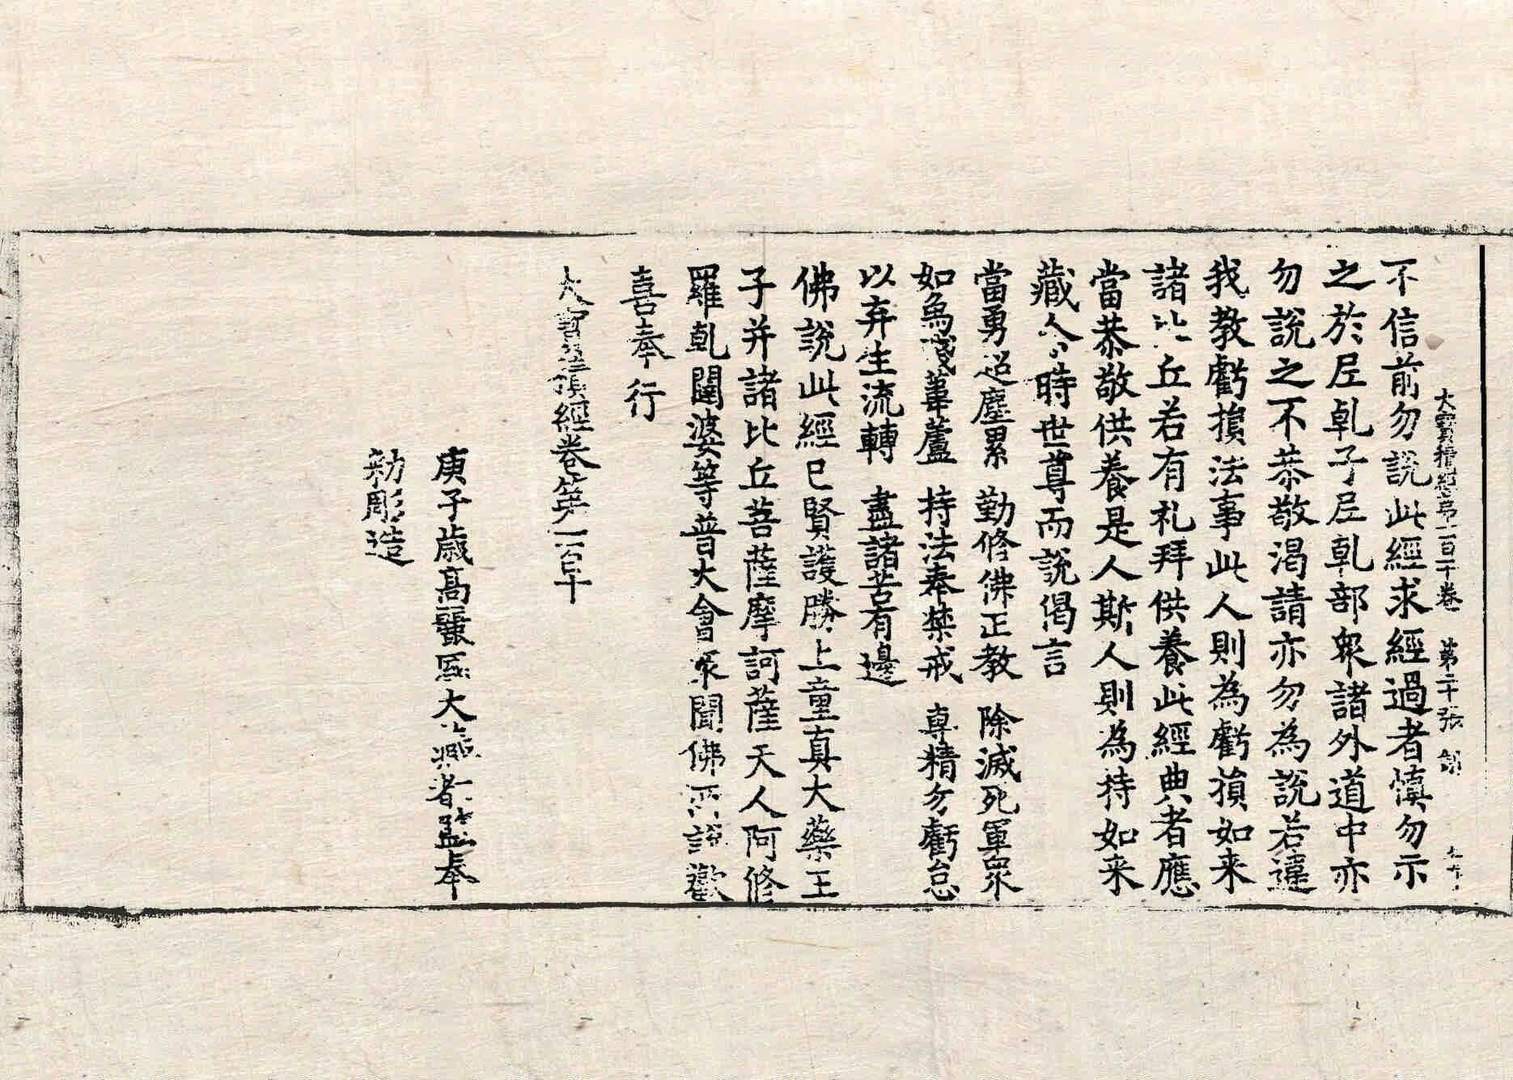 大寶積經第一百十卷 第二十張 
不信前勿說此經求經過者慎勿示
之於尼乹子尼乹部衆諸外道中亦
勿說之不恭敬渴請亦勿為說若違
我教虧損法事此人則為虧損如来
諸比丘若有礼拜供養此經典者應
當恭敬供養是人斯人則為持如来
藏尒時世尊而說偈言
當勇超塵累 勤修佛正教 除滅死軍眾
如為殘葦蘆 持法奉禁戒 専精勿虧怠
以弃生流轉 盡諸苦有邊
佛說此經已賢護勝上童真大藥王
子并諸比丘菩薩摩訶薩天人阿修
羅乹闥婆等普大會衆聞佛所說歡
喜奉行
大寶積經卷第一百二十
庚子歳高麗國大藏都監奉
勑彫造